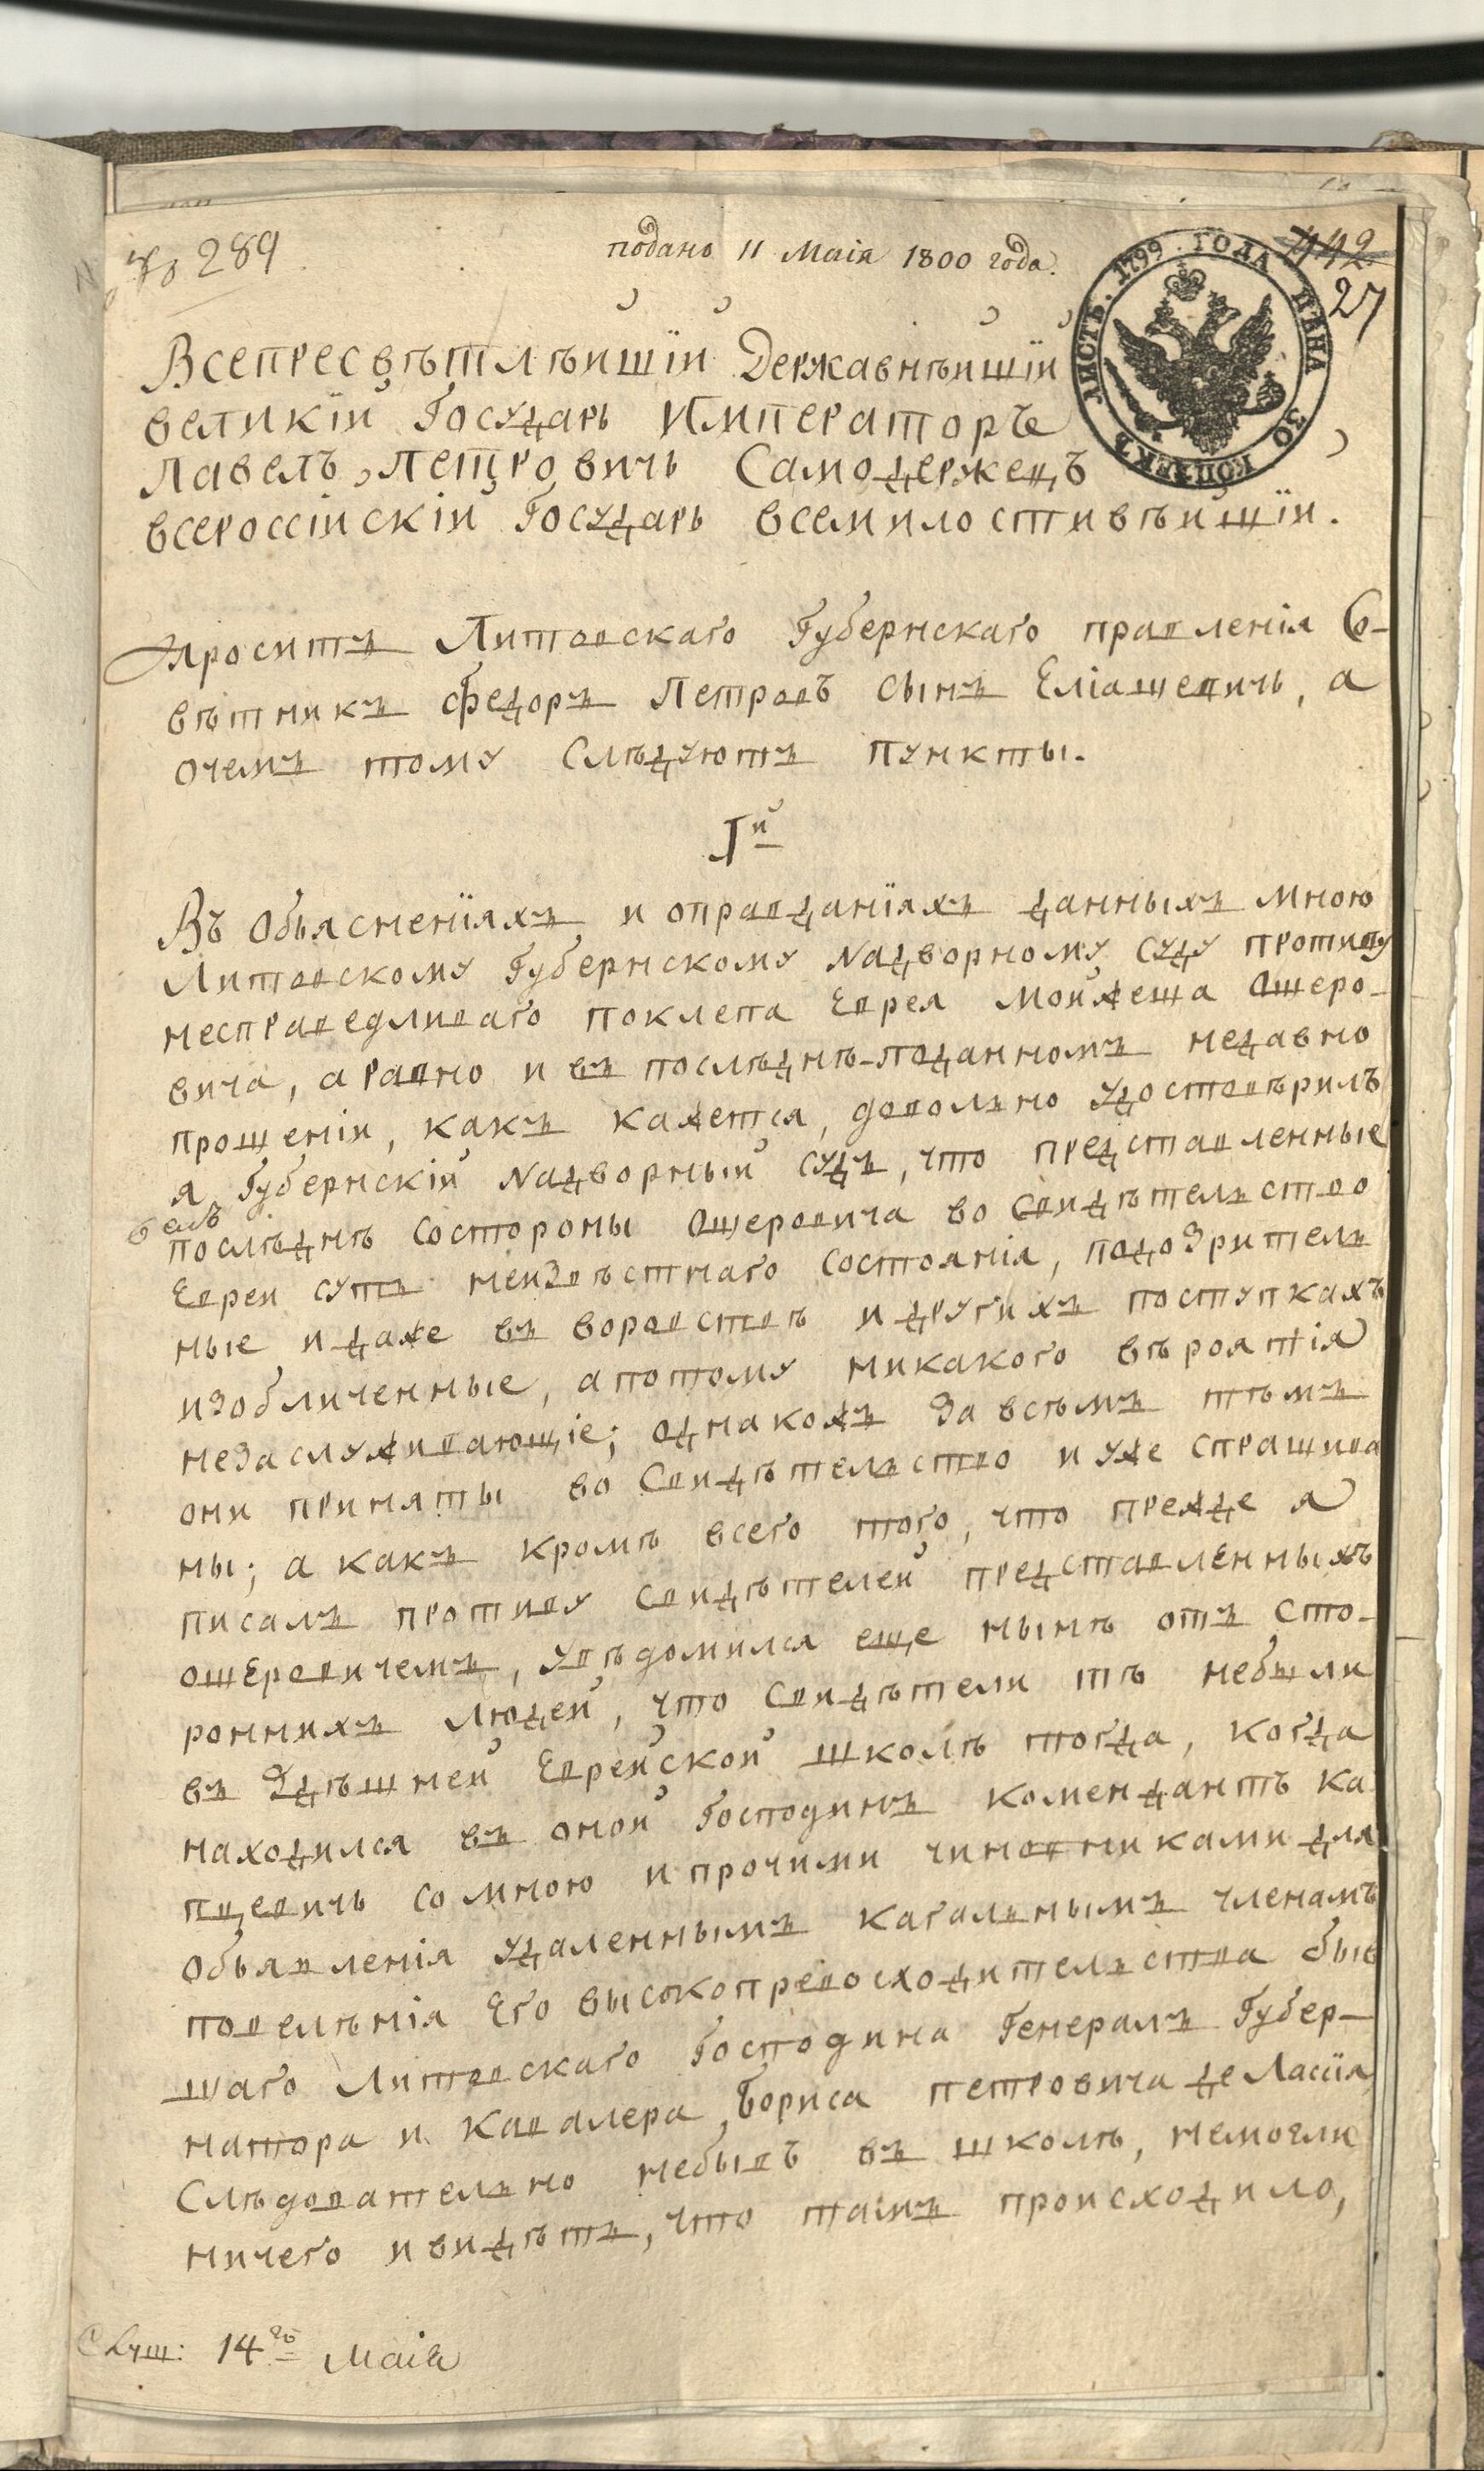 № 289
подано 11 Маія 1800 года.
442
27
ЛИСТЪ. 1799. ГОДА ЦѢНА 30 КОПѢЕКЪ
Всепресвѣтлѣйшій Державнѣйшій
великій Государь Императоръ
Павелъ Петровичь Самодержецъ
всероссійскій Государь всемилостивѣйшій.
Проситъ Литовскаго Губернскаго правленія Со-
вѣтникъ Федоръ Петровъ сынъ Еліашевичь, а
очемъ тому Слѣдуютъ пункты.
1й
Въ Объясненіяхъ и оправданіяхъ данныхъ мною
Литовскому Губернскому Надворному Суду противу
несправедливаго поклепа Еврея Мойжеша Ошеро-
вича, а равно и въ послѣднѣ-поданномъ недавно
прошеніи, какъ кажется, довольно удостовѣрилъ
я Губернскій Надворный Судъ, что представленные
послѣднѣ состороны Ошеровича во Свидѣтельство
Евреи суть неизвѣстнаго Состоянія, подозритель
ные и даже въ воровствѣ и другихъ поступкахъ
изобличенные, а потому никакого вѣроятія
незаслуживающіе; однакожъ За всѣмъ тѣмъ
они приняты во Свидѣтельство и уже спрашива
ны; а какъ кромѣ всего того, что прежде я
писалъ противу Свидѣтелей представленныхъ
ошеровичемъ, увѣдомился еще нынѣ отъ сто-
роннихъ людей, что Свидѣтели тѣ небыли
въ Здѣшней Еврейской школѣ тогда, когда
находился въ оной Господинъ комендантъ Ка
пцевичь со мною и прочими чиновниками для
Объявленія удаленнымъ кагальнымъ членамъ
повелѣнія Его высокопревосходительства быв
шаго Литовскаго Господина Генералъ Губер-
натора и Кавалера Бориса петровича де Лассія
Слѣдовательно небывъ въ школѣ, немогли
ничего и видѣть, что тамъ происходило,
Слуш: 14го Маія